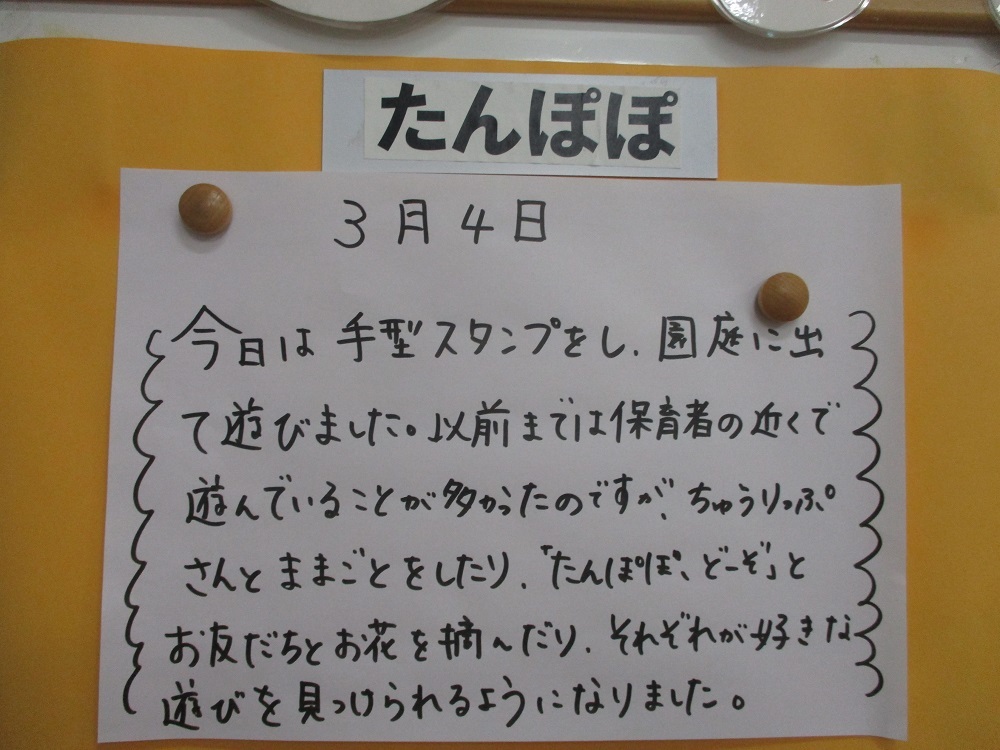 たんぽぽ
3月4日
今日は手型スタンプをし、園庭に出
て遊びました。以前までは保育者の近くで
遊んでいることが多かったのですが、ちゅうりっぷ
さんとままごとをしたり、「たんぽぽ、どーぞ」と
お友だちとお花を摘んだり、それぞれが好きな
遊びを見つけられるようになりました。